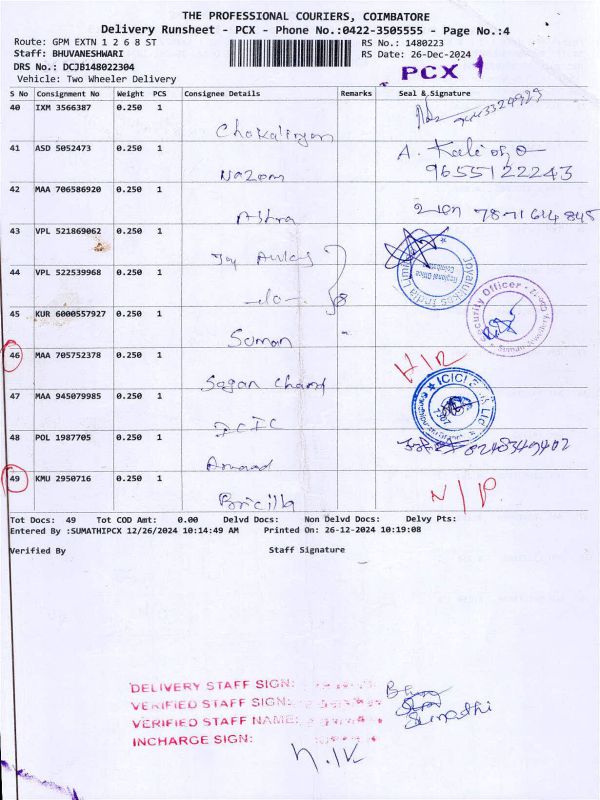 THE PROFESSIONAL COURIERS, COIMBATORE
Delivery Runsheet - PCX - Phone No.:0422-3505555 - Page No.:4
Route: GPM EXTN 1 2 6 8 ST RS No.: 1480223
Staff: BHUVANESHWARI RS Date: 26-Dec-2024
DRS No.: DCJB148022304
PCX 1
Vehicle: Two Wheeler Delivery
S No Consignment No Weight PCS Consignee Details Remarks Seal & Signature
40 IXM 3566387 0.250 1
41 ASD 5052473 0.250 1 Nazom A.
9655122243
42 MAA 706586920 0.250 1 Athra 7871614845
43 VPL 521869062 0.250 1 Joy
Regional Office
Coimbatore
44 VPL 522539968 0.250 1 -do-
Security Officer
45 KUR 6000557927 0.250 1 Suman
46 MAA 705752378 0.250 1 Sagan Chand
47 MAA 945079985 0.250 1 ICIC
ICICI
48 POL 1987705 0.250 1 8248349402
49 KMU 2950716 0.250 1 Bricilla N/P.
Tot Docs: 49 Tot COD Amt: 0.00 Delvd Docs: Non Delvd Docs: Delvy Pts:
Entered By :SUMATHIPCX 12/26/2024 10:14:49 AM Printed On: 26-12-2024 10:19:08
Verified By Staff Signature
DELIVERY STAFF SIGN:
VERIFIED STAFF SIGN:
VERIFIED STAFF NAME: Sumathi
INCHARGE SIGN: